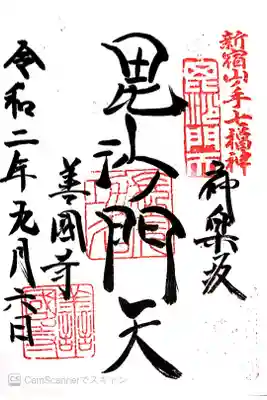 新宿山ノ手七福神
毘沙門天
神楽坂
毘沙門天
善國寺
令和二年元月六日
CS CamScannerでスキャン